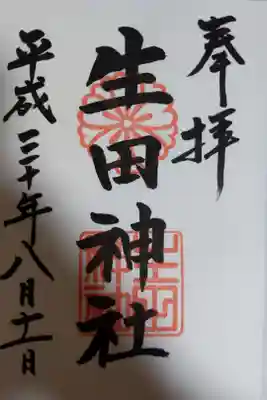 奉拝
生田神社
平成三十年八月十一日